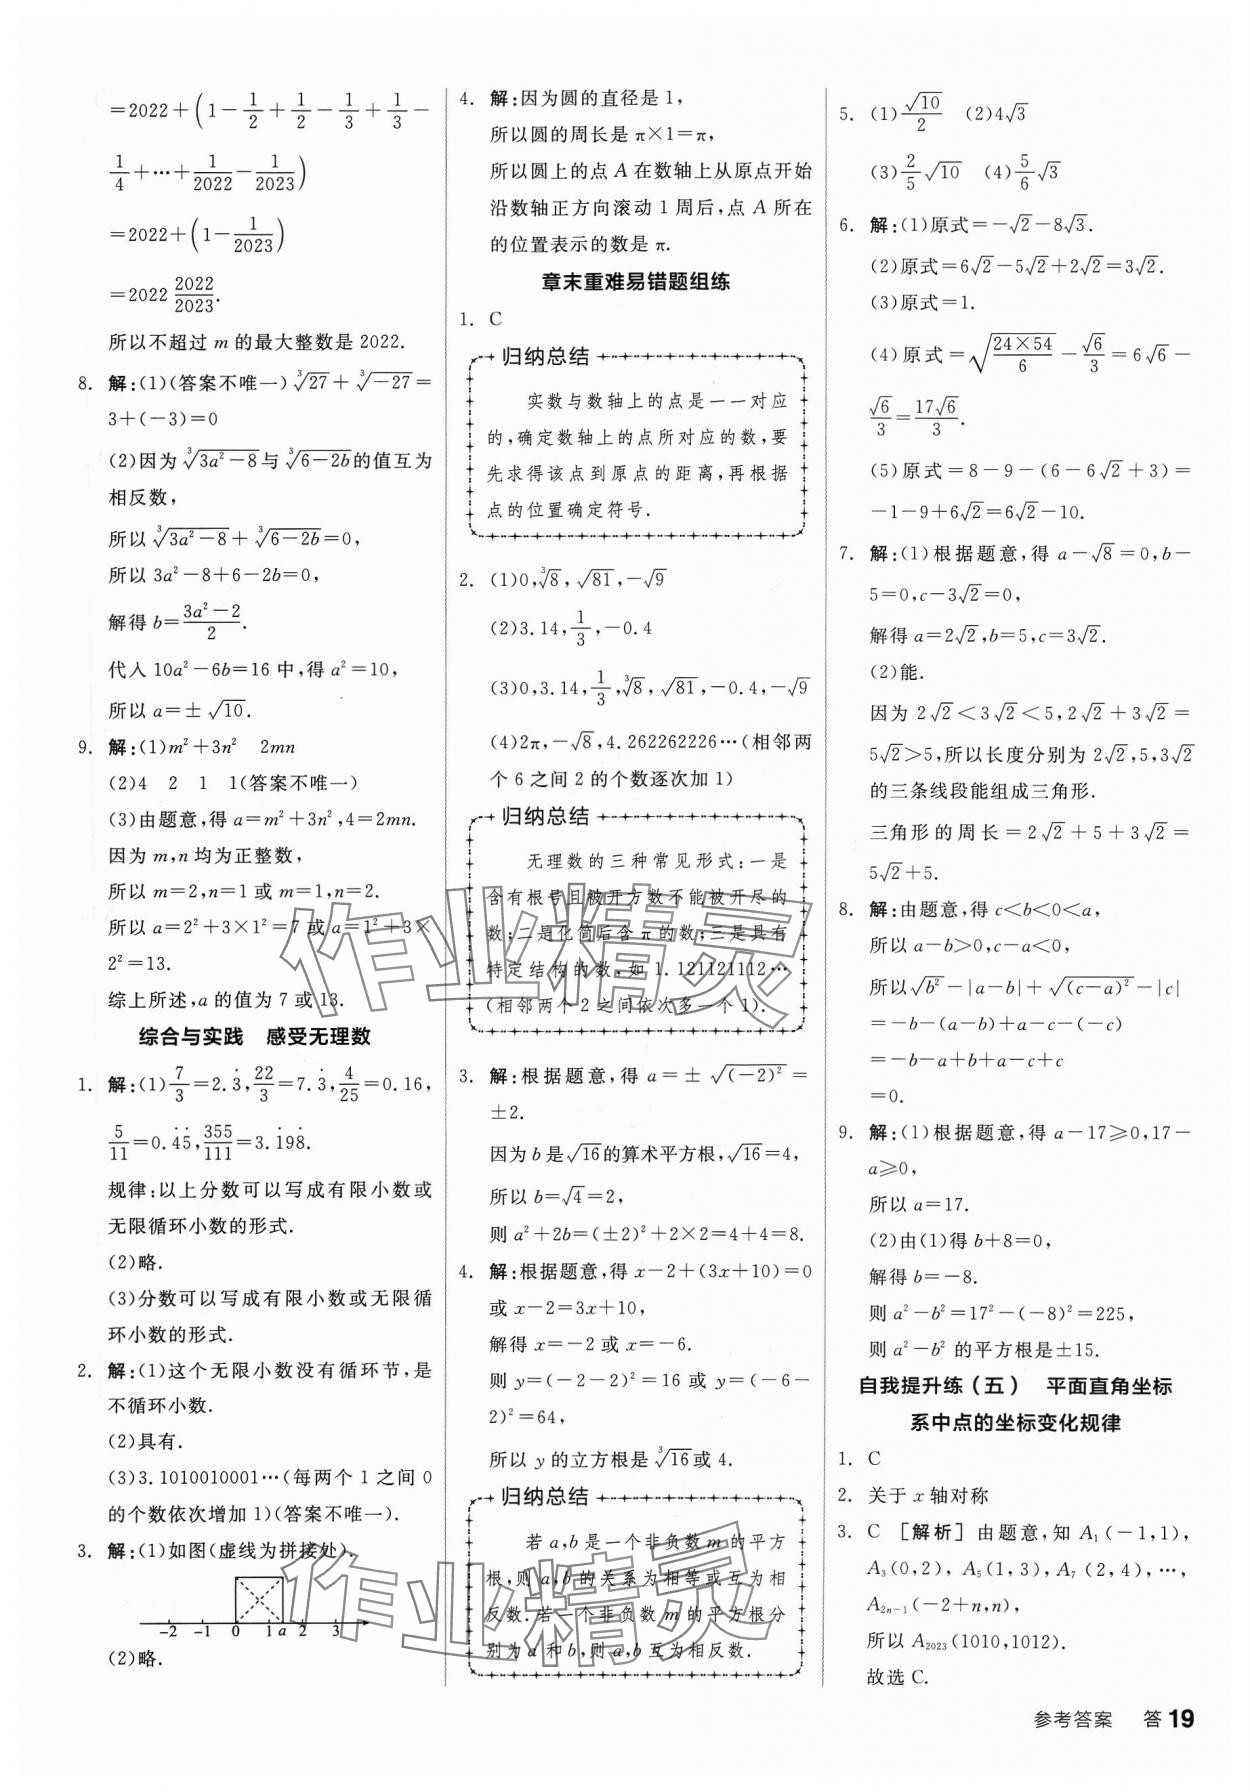 =2022+(1-1/2+1/2-1/3+1/3-
1/4+…+1/2022-1/2023)
=2022+(1-1/2023)
=2022 2022/2023.
所以不超过 m 的最大整数是 2022.
8. 解:(1)(答案不唯一)∛27+∛-27=
3+(-3)=0
(2)因为∛(3a²-8)与∛(6-2b)的值互为
相反数,
所以∛(3a²-8)+∛(6-2b)=0,
所以 3a²-8+6-2b=0,
解得 b=(3a²-2)/2.
代入 10a²-6b=16 中,得 a²=10,
所以 a=±√10.
9. 解:(1)m²+3n² 2mn
(2)4 2 1 1(答案不唯一)
(3)由题意,得 a=m²+3n²,4=2mn.
因为 m,n 均为正整数,
所以 m=2,n=1 或 m=1,n=2.
所以 a=2²+3×1²=7 或 a=1²+3×
2²=13.
综上所述,a 的值为 7 或 13.
综合与实践 感受无理数
1. 解:(1)7/3=2.3̇,22/3=7.3̇,4/25=0.16,
5/11=0.4̇5̇,355/111=3.1̇98̇.
规律:以上分数可以写成有限小数或
无限循环小数的形式.
(2)略.
(3)分数可以写成有限小数或无限循
环小数的形式.
2. 解:(1)这个无限小数没有循环节,是
不循环小数.
(2)具有.
(3)3.1010010001…(每两个 1 之间 0
的个数依次增加 1)(答案不唯一).
3. 解:(1)如图(虚线为拼接处).
-2 -1 0 1 a 2 3
(2)略.
4. 解:因为圆的直径是 1,
所以圆的周长是 π×1=π,
所以圆上的点 A 在数轴上从原点开始
沿数轴正方向滚动 1 周后,点 A 所在
的位置表示的数是 π.
章末重难易错题组练
1. C
归纳总结
实数与数轴上的点是一一对应
的,确定数轴上的点所对应的数,要
先求得该点到原点的距离,再根据
点的位置确定符号.
2. (1)0,∛8,√81,-√9
(2)3.14,1/3,-0.4
(3)0,3.14,1/3,∛8,√81,-0.4,-√9
(4)2π,-√8,4.262262226…(相邻两
个 6 之间 2 的个数逐次加 1)
归纳总结
无理数的三种常见形式:一是
含有根号且被开方数不能被开尽的
数;二是化简后含 π 的数;三是具有
特定结构的数,如 1.121121112…
(相邻两个 2 之间依次多一个 1).
3. 解:根据题意,得 a=±√(-2)²=
±2.
因为 b 是√16的算术平方根,√16=4,
所以 b=√4=2,
则 a²+2b=(±2)²+2×2=4+4=8.
4. 解:根据题意,得 x-2+(3x+10)=0
或 x-2=3x+10,
解得 x=-2 或 x=-6.
则 y=(-2-2)²=16 或 y=(-6-
2)²=64,
所以 y 的立方根是∛16或 4.
归纳总结
若 a,b 是一个非负数 m 的平方
根,则 a,b 的关系为相等或互为相
反数.若一个非负数 m 的平方根分
别为 a 和 b,则 a,b 互为相反数.
5. (1)√10/2 (2)4√3
(3)2/5√10 (4)5/6√3
6. 解:(1)原式=-√2-8√3.
(2)原式=6√2-5√2+2√2=3√2.
(3)原式=1.
(4)原式=√(24×54/6)-√6/3=6√6-
√6/3=17√6/3.
(5)原式=8-9-(6-6√2+3)=
-1-9+6√2=6√2-10.
7. 解:(1)根据题意,得 a-√8=0,b-
5=0,c-3√2=0,
解得 a=2√2,b=5,c=3√2.
(2)能.
因为 2√2<3√2<5,2√2+3√2=
5√2>5,所以长度分别为 2√2,5,3√2
的三条线段能组成三角形.
三角形的周长=2√2+5+3√2=
5√2+5.
8. 解:由题意,得 c<b<0<a,
所以 a-b>0,c-a<0,
所以√b²-|a-b|+√(c-a)²-|c|
=-b-(a-b)+a-c-(-c)
=-b-a+b+a-c+c
=0.
9. 解:(1)根据题意,得 a-17≥0,17-
a≥0,
所以 a=17.
(2)由(1)得 b+8=0,
解得 b=-8.
则 a²-b²=17²-(-8)²=225,
则 a²-b² 的平方根是±15.
自我提升练(五) 平面直角坐标
系中点的坐标变化规律
1. C
2. 关于 x 轴对称
3. C [解析] 由题意,知 A₁(-1,1),
A₃(0,2),A₅(1,3),A₇(2,4),…,
A₂ₙ₋₁(-2+n,n),
所以 A₂₀₂₃(1010,1012).
故选 C.
参考答案 答 19
作业精灵
作业精灵